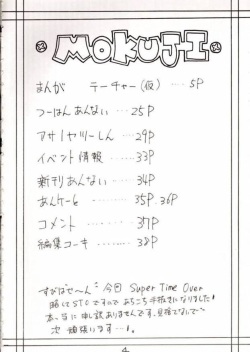 MOKUJI
まんが テーチャー(仮) ····· 5P
つーはんあんない ···· 25P
アサーヤツーしん ···· 29P
イベント情報 ····· 33P
新刊あんない ···· 34P
あんけーと ···· 35P.36P
コメント ······ 37P
編集コーキ ···· 38P
すびばせ〜ん 今回 Super Time Over
略してSTOですのであちこち手抜きになりました!
本当に申し訳ありませんです。見捨てないで
次 頑張ります…。
4